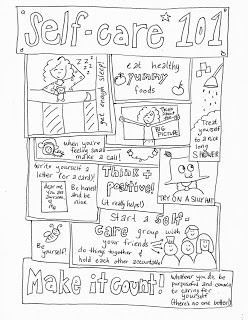 Self-care 101
z z z z
get enough sleep!
eat healthy
yummy
foods
Think
about
the
BIG
PICTURE
Treat
yourself
to a nice
long
SHOWER
when you're
feeling small
make a call!
Write yourself a
letter (or a card)!
dear me
you are
awesome.
♡ me
Be honest
and be
nice
Think +
positive!
(it really helps!)
TRY ON A SILLY HAT
Be
yourself!
Start a self-
care group with
your friends
do things together &
hold each other accountable!
Make it count!
Whatever you do, be
purposeful and commit
to caring for
yourself
(there's no one better!)